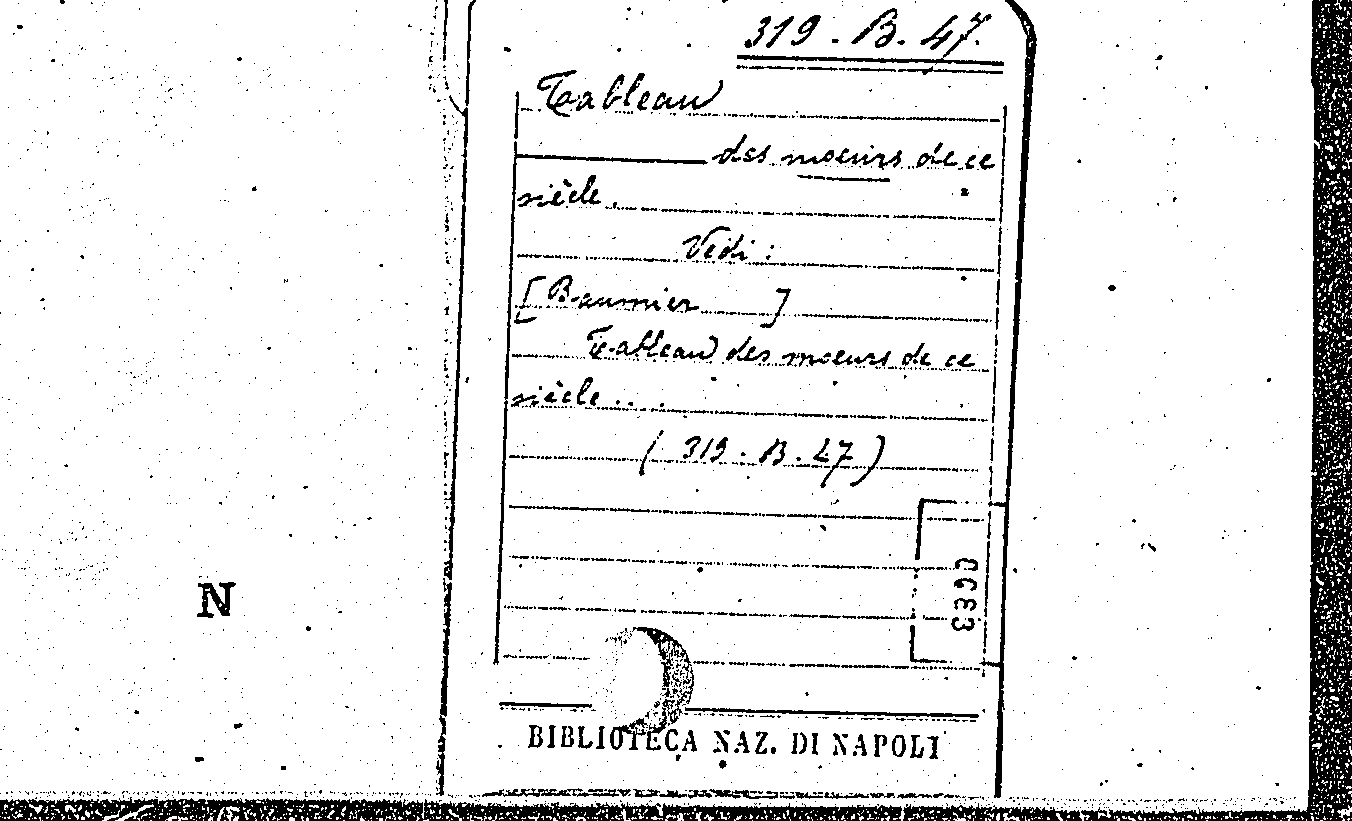 319. B. 47.
Tableau
des moeurs de ce
siècle.
Vedi:
[Baumier ]
Tableau des moeurs de ce
siècle...
(319. B. 47)
N
BIBLIOTECA NAZ. DI NAPOLI